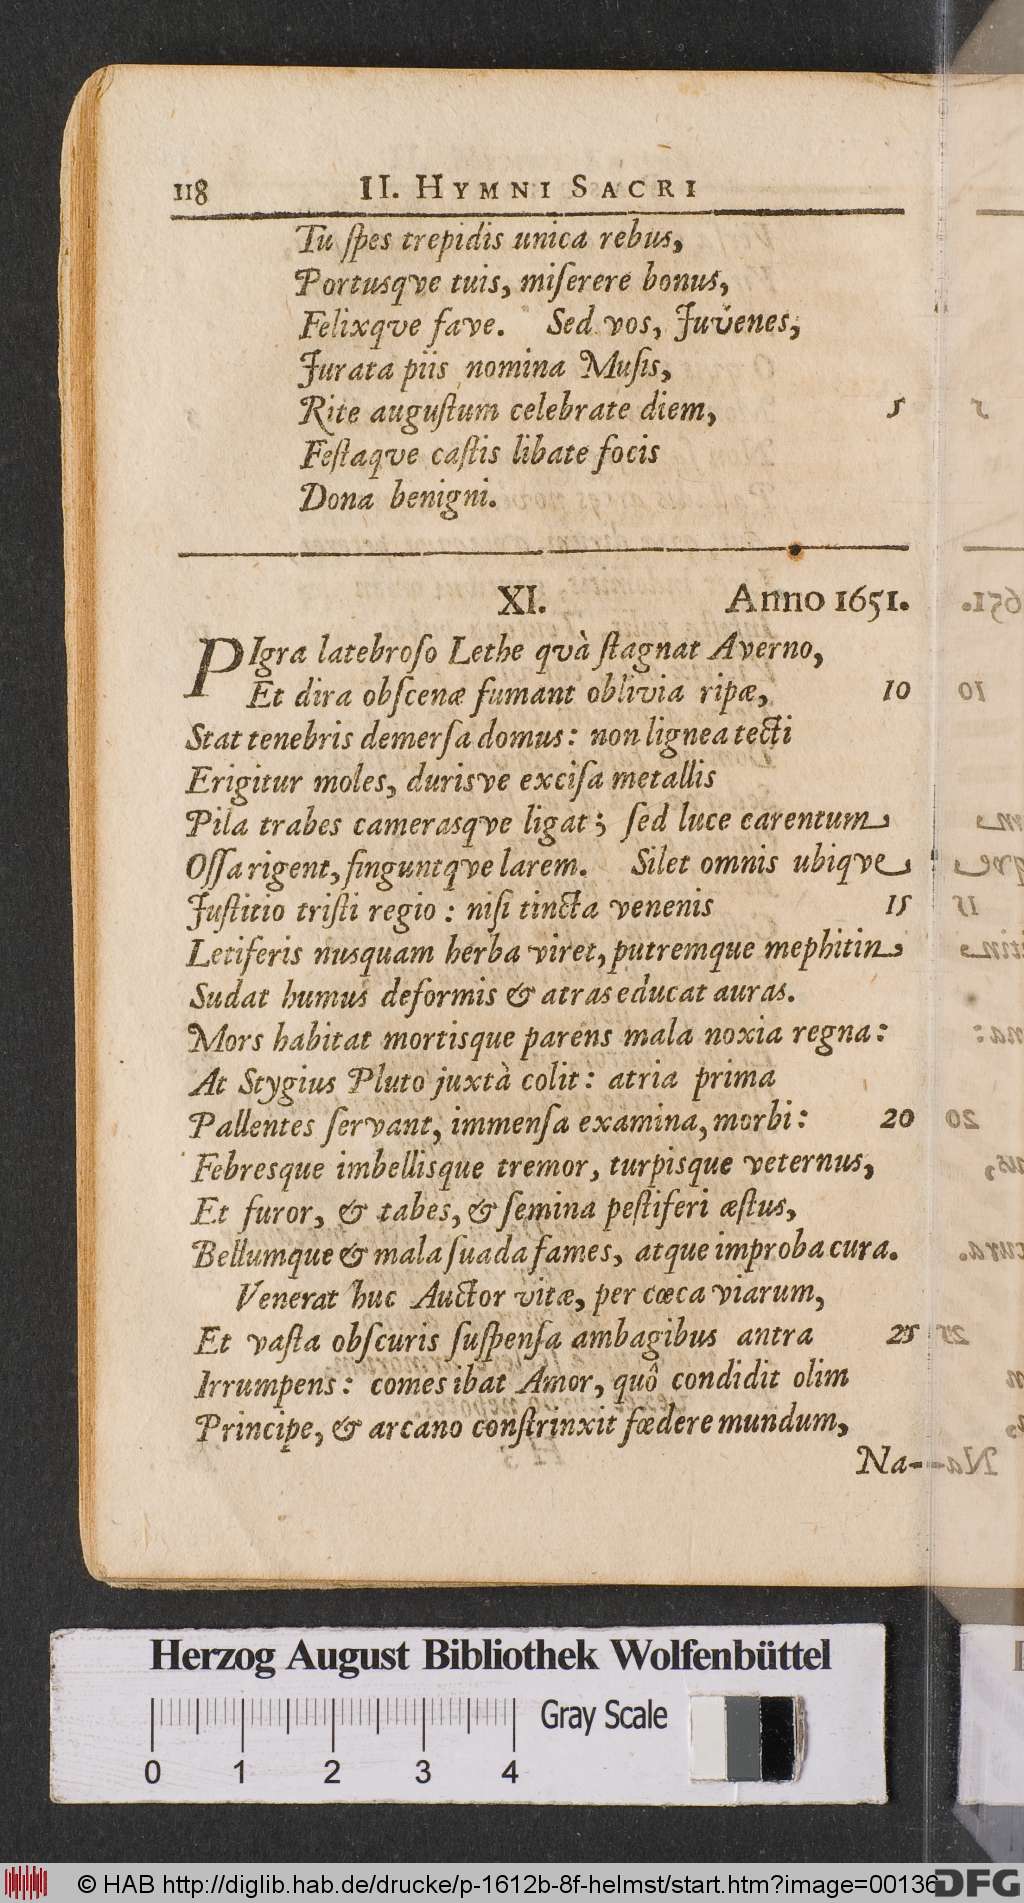 118 II. HYMNI SACRI
Tu ſpes trepidis unica rebus,
Portusqve tuis, miſerere bonus,
Felixqve fave. Sed vos, Juvenes,
Jurata piis nomina Muſis,
Rite auguſtum celebrate diem, 5
Feſtaqve caſtis libate focis
Dona benigni.
XI. Anno 1651.
PIgra latebroſo Lethe qvà ſtagnat Averno,
Et dira obſcenæ fumant oblivia ripæ, 10
Stat tenebris demerſa domus: non lignea tecti
Erigitur moles, durisve exciſa metallis
Pila trabes camerasqve ligat; ſed luce carentum
Oſſa rigent, finguntqve larem. Silet omnis ubiqve
Juſtitio triſti regio: niſi tincta venenis 15
Letiferis nusquam herba viret, putremque mephitin
Sudat humus deformis & atras educat auras.
Mors habitat mortisque parens mala noxia regna:
At Stygius Pluto juxtà colit: atria prima
Pallentes ſervant, immenſa examina, morbi: 20
Febresque imbellisque tremor, turpisque veternus,
Et furor, & tabes, & ſemina peſtiferi æſtus,
Bellumque & mala ſuada fames, atque improba cura.
Venerat huc Auctor vitæ, per cœca viarum,
Et vaſta obſcuris ſuſpenſa ambagibus antra 25
Irrumpens: comes ibat Amor, quô condidit olim
Principe, & arcano conſtrinxit fœdere mundum,
Na-
Herzog August Bibliothek Wolfenbüttel
Gray Scale
0 1 2 3 4
© HAB http://diglib.hab.de/drucke/p-1612b-8f-helmst/start.htm?image=00136
DFG